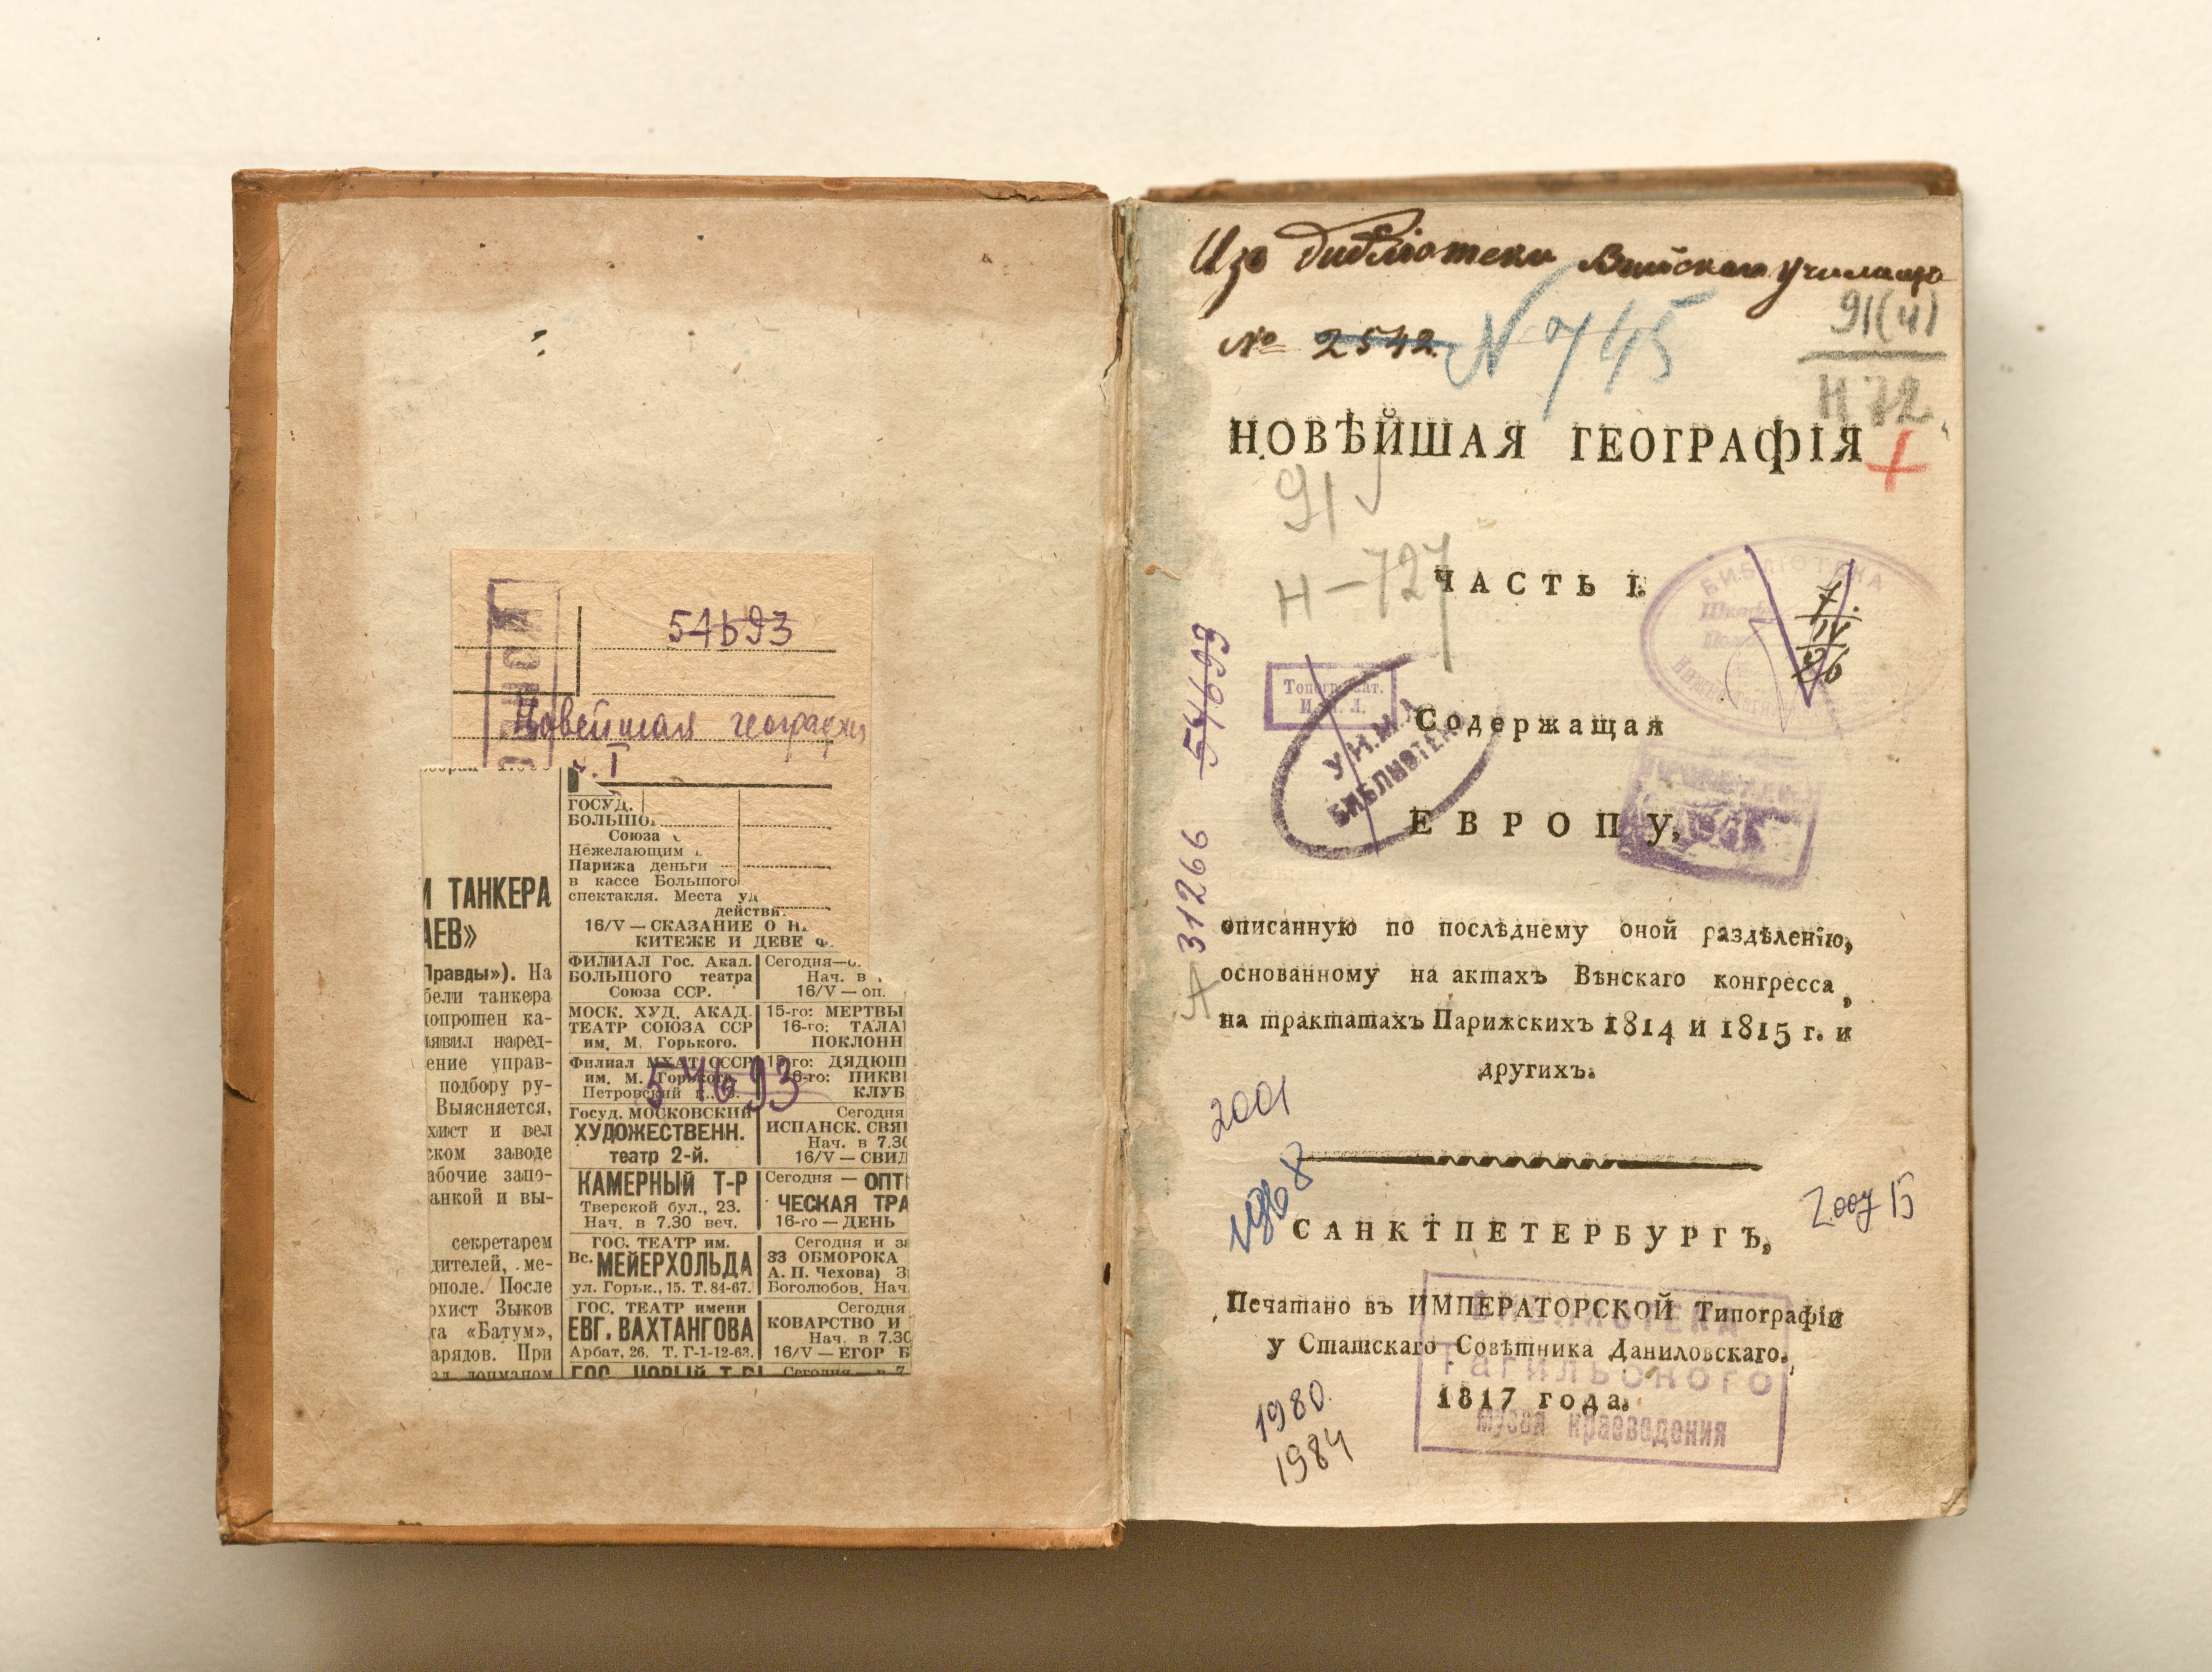 54693
Новейшая география
ч. I
И ТАНКЕРА
АЕВ»
Правды»). На
бели танкера
допрошен ка-
явил наред-
ение управ-
подбору ру-
Выясняется,
хист и вел
ском заводе
абочие запо-
анкой и вы-
секретарем
дителей, ме-
ополе. После
охист Зыков
та «Батум»,
арядов. При
лоцманом
ГОСУД.
БОЛЬШО
Союза
Нежелающим
Парижа деньги
в кассе Большого
спектакля. Места уд
действи
16/V — СКАЗАНИЕ О Н
КИТЕЖЕ И ДЕВЕ Ф
ФИЛИАЛ Гос. Акад.
БОЛЬШОГО театра
Союза ССР.
Сегодня—о.
Нач. в
16/V — оп.
МОСК. ХУД. АКАД.
ТЕАТР СОЮЗА ССР
им. М. Горького.
15-го: МЕРТВЫ
16-го: ТАЛА
ПОКЛОНН
Филиал МХАТ СССР
им. М. Горького
Петровский
15-го: ДЯДЮШ
16-го: ПИКВ
КЛУБ
54693
Госуд. МОСКОВСКИЙ
ХУДОЖЕСТВЕНН.
театр 2-й.
Сегодня
ИСПАНСК. СВЯ
Нач. в 7.30
16/V — СВИД
КАМЕРНЫЙ Т-Р
Тверской бул., 23.
Нач. в 7.30 веч.
Сегодня — ОПТ
ЧЕСКАЯ ТРА
16-го — ДЕНЬ
ГОС. ТЕАТР им.
Вс. МЕЙЕРХОЛЬДА
ул. Горьк., 15. Т. 84-67.
Сегодня и за
33 ОБМОРОКА
А. П. Чехова) З
Боголюбов. Нач
ГОС. ТЕАТР имени
ЕВГ. ВАХТАНГОВА
Арбат, 26. Т. Г-1-12-63.
Сегодня
КОВАРСТВО И
Нач. в 7.30
16/V — ЕГОР Б
ГОС. НОВЫЙ Т-Р
Сегодня — в 7
Изъ библіотеки Выйскаго училища
№ 2542. N 745
91(4)
Н72
НОВѢЙШАЯ ГЕОГРАФІЯ
91
Н-727
ЧАСТЬ I.
БИБЛІОТЕКА
Шкафъ
7.
IV
26
Топограф.кат.
У.Н.М.Л.
БИБЛИОТЕКА
Содержащая
ЕВРОПУ,
54693
31266
А
описанную по послѣднему оной раздѣленію,
основанному на актахъ Вѣнскаго конгресса,
на трактатахъ Парижскихъ 1814 и 1815 г. и
другихъ.
2001
1968
2007 15
САНКТПЕТЕРБУРГЪ,
Печатано въ ИМПЕРАТОРСКОЙ Типографіи
у Статскаго Совѣтника Даниловскаго.
1817 года.
БИБЛИОТЕКА
Тагильского
музея краеведения
1980.
1984